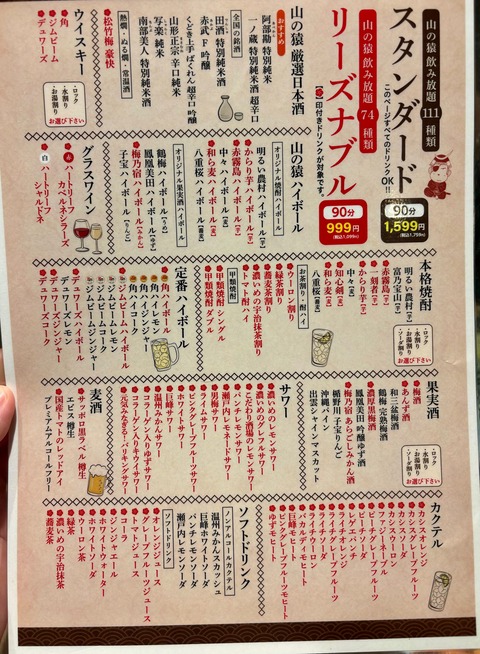 山の猿 飲み放題 111種類
スタンダード
このページすべてのドリンクOK!!
90分
1,599円
(税込1,759円)
山の猿 飲み放題 74種類
リーズナブル
印付きドリンクが対象です。
90分
999円
(税込1,099円)
おすすめ
山の猿 厳選日本酒
阿部勘 特別純米酒
一ノ蔵 特別純米酒 超辛口
全国の銘酒
田酒 特別純米酒
赤武 F 吟醸
くどき上手 ばくれん 超辛口 吟醸
山形正宗 辛口純米
写楽 純米
南部美人 特別純米酒
熱燗・ぬる燗・常温酒
松竹梅 豪快
ウイスキー
角
ジムビーム
デュワーズ
・ロック
・水割り
・お湯割り
お選び下さい
本格焼酎
明るい農村[芋]
富乃宝山[芋]
赤霧島[芋]
一刻者[芋]
からり芋[芋]
中々[麦]
知心剣[麦]
和ら麦[麦]
八重桜[蕎麦]
・ロック
・水割り
・お湯割り
・ソーダ割り
お選び下さい
お茶割り・酎ハイ
ウーロン割り
緑茶割り
蕎麦茶割り
濃いめの宇治抹茶割り
トマト酎ハイ
甲類焼酎
甲類焼酎 シングル
甲類焼酎 ダブル
山の猿 ハイボール
オリジナル焼酎ハイボール
明るい農村ハイボール[芋]
からり芋ハイボール[芋]
赤霧島ハイボール[芋]
中々ハイボール[麦]
和ら麦ハイボール[麦]
八重桜ハイボール[蕎麦]
オリジナル果実酒ハイボール
鶴梅ハイボール[梅]
鳳凰美田ハイボール[ゆず]
梅乃宿ハイボール[みかん]
子宝ハイボール[りんご]
定番ハイボール
角ハイボール
角ハイジンジャー
角ハイレモン
角ハイコーク
ジムビームハイボール
ジムビームレモン
ジムビームコーク
ジムビームジンジャー
デュワーズハイボール
デュワーズジンジャー
デュワーズレモン
デュワーズコーク
グラスワイン
赤 ハートリーフ
カベルネソーヴィニヨン・シラーズ
白 ハートリーフ
シャルドネ
果実酒
梅酒
あんず酒
和三盆梅酒
鶴梅 完熟梅酒
濃厚黒梅酒
鳳凰美田 吟醸ゆず酒
梅乃宿 あらごしみかん酒
楯野川 子宝りんご
沖縄パイン
出雲シャインマスカット
・ロック
・水割り
・お湯割り
・ソーダ割り
お選び下さい
サワー
濃いめのレモンサワー
濃いめのグレフルサワー
こだわり酒場のレモンサワー
瀬戸内レモネードサワー
男梅サワー
ライムサワー
ピンクグレープフルーツサワー
ホワイトサワー
巨峰サワー
温州みかんサワー
コラーゲン入りゆずサワー
コラーゲン入りキウイサワー
元気みなぎる!バリキングサワー
麦酒
サッポロ黒ラベル 樽生
エビス 樽生
国産トマトのレッドアイ
プレミアムアルコールフリー
カクテル
カシスオレンジ
カシスグレープフルーツ
カシスソーダ
カシスウーロン
ファジーネーブル
ピーチグレープフルーツ
ピーチウーロン
レゲエパンチ
ライチオレンジ
ライチグレープフルーツ
ライチウーロン
モヒート
バカルディモヒート
巨峰モヒート
ピンクグレープフルーツモヒート
ゆずモヒート
ソフトドリンク
ノンアルコールカクテル
温州みかんスカッシュ
巨峰ホワイトソーダ
パチレモンソーダ
瀬戸内レモンソーダ
ソフトドリンク
オレンジジュース
グレープフルーツジュース
トマトジュース
コーラ
ジンジャエール
ホワイトウォーター
ホワイトソーダ
ウーロン茶
緑茶
濃いめの宇治抹茶
蕎麦茶